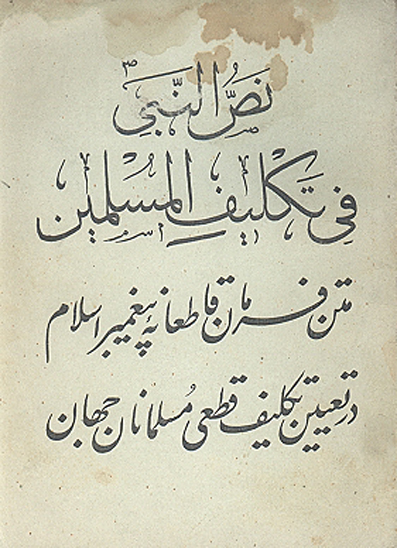 نَصُّ النَّبِی ص
فِی تَکْلِیفِ الْمُسْلِمِینَ
متن فرمان قاطعانهٔ پیغمبر اسلام
در تعیین تکلیف قطعی مُسلمانان جهان